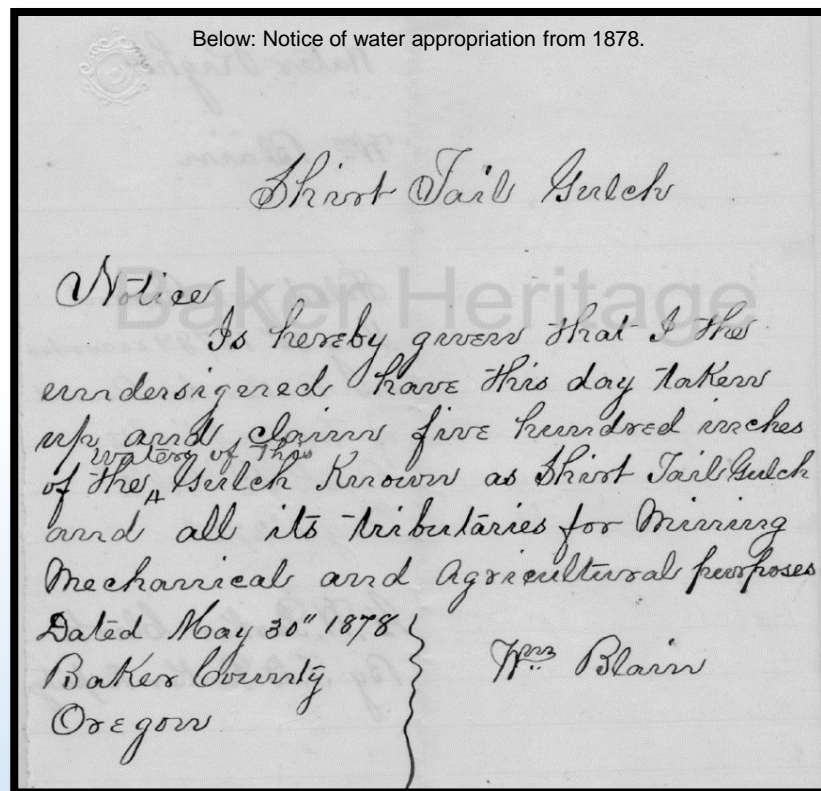 Below: Notice of water appropriation from 1878.
Shirt Tail Gulch
Baker Heritage
Notice
Is hereby given that I the
undersigned have this day taken
up and claim five hundred inches
waters of this
of the ‸ Gulch Known as Shirt Tail Gulch
and all its tributaries for Mining
Mechanical and Agricultural purposes
Dated May 30" 1878
Baker County
Oregon
Wm Blain